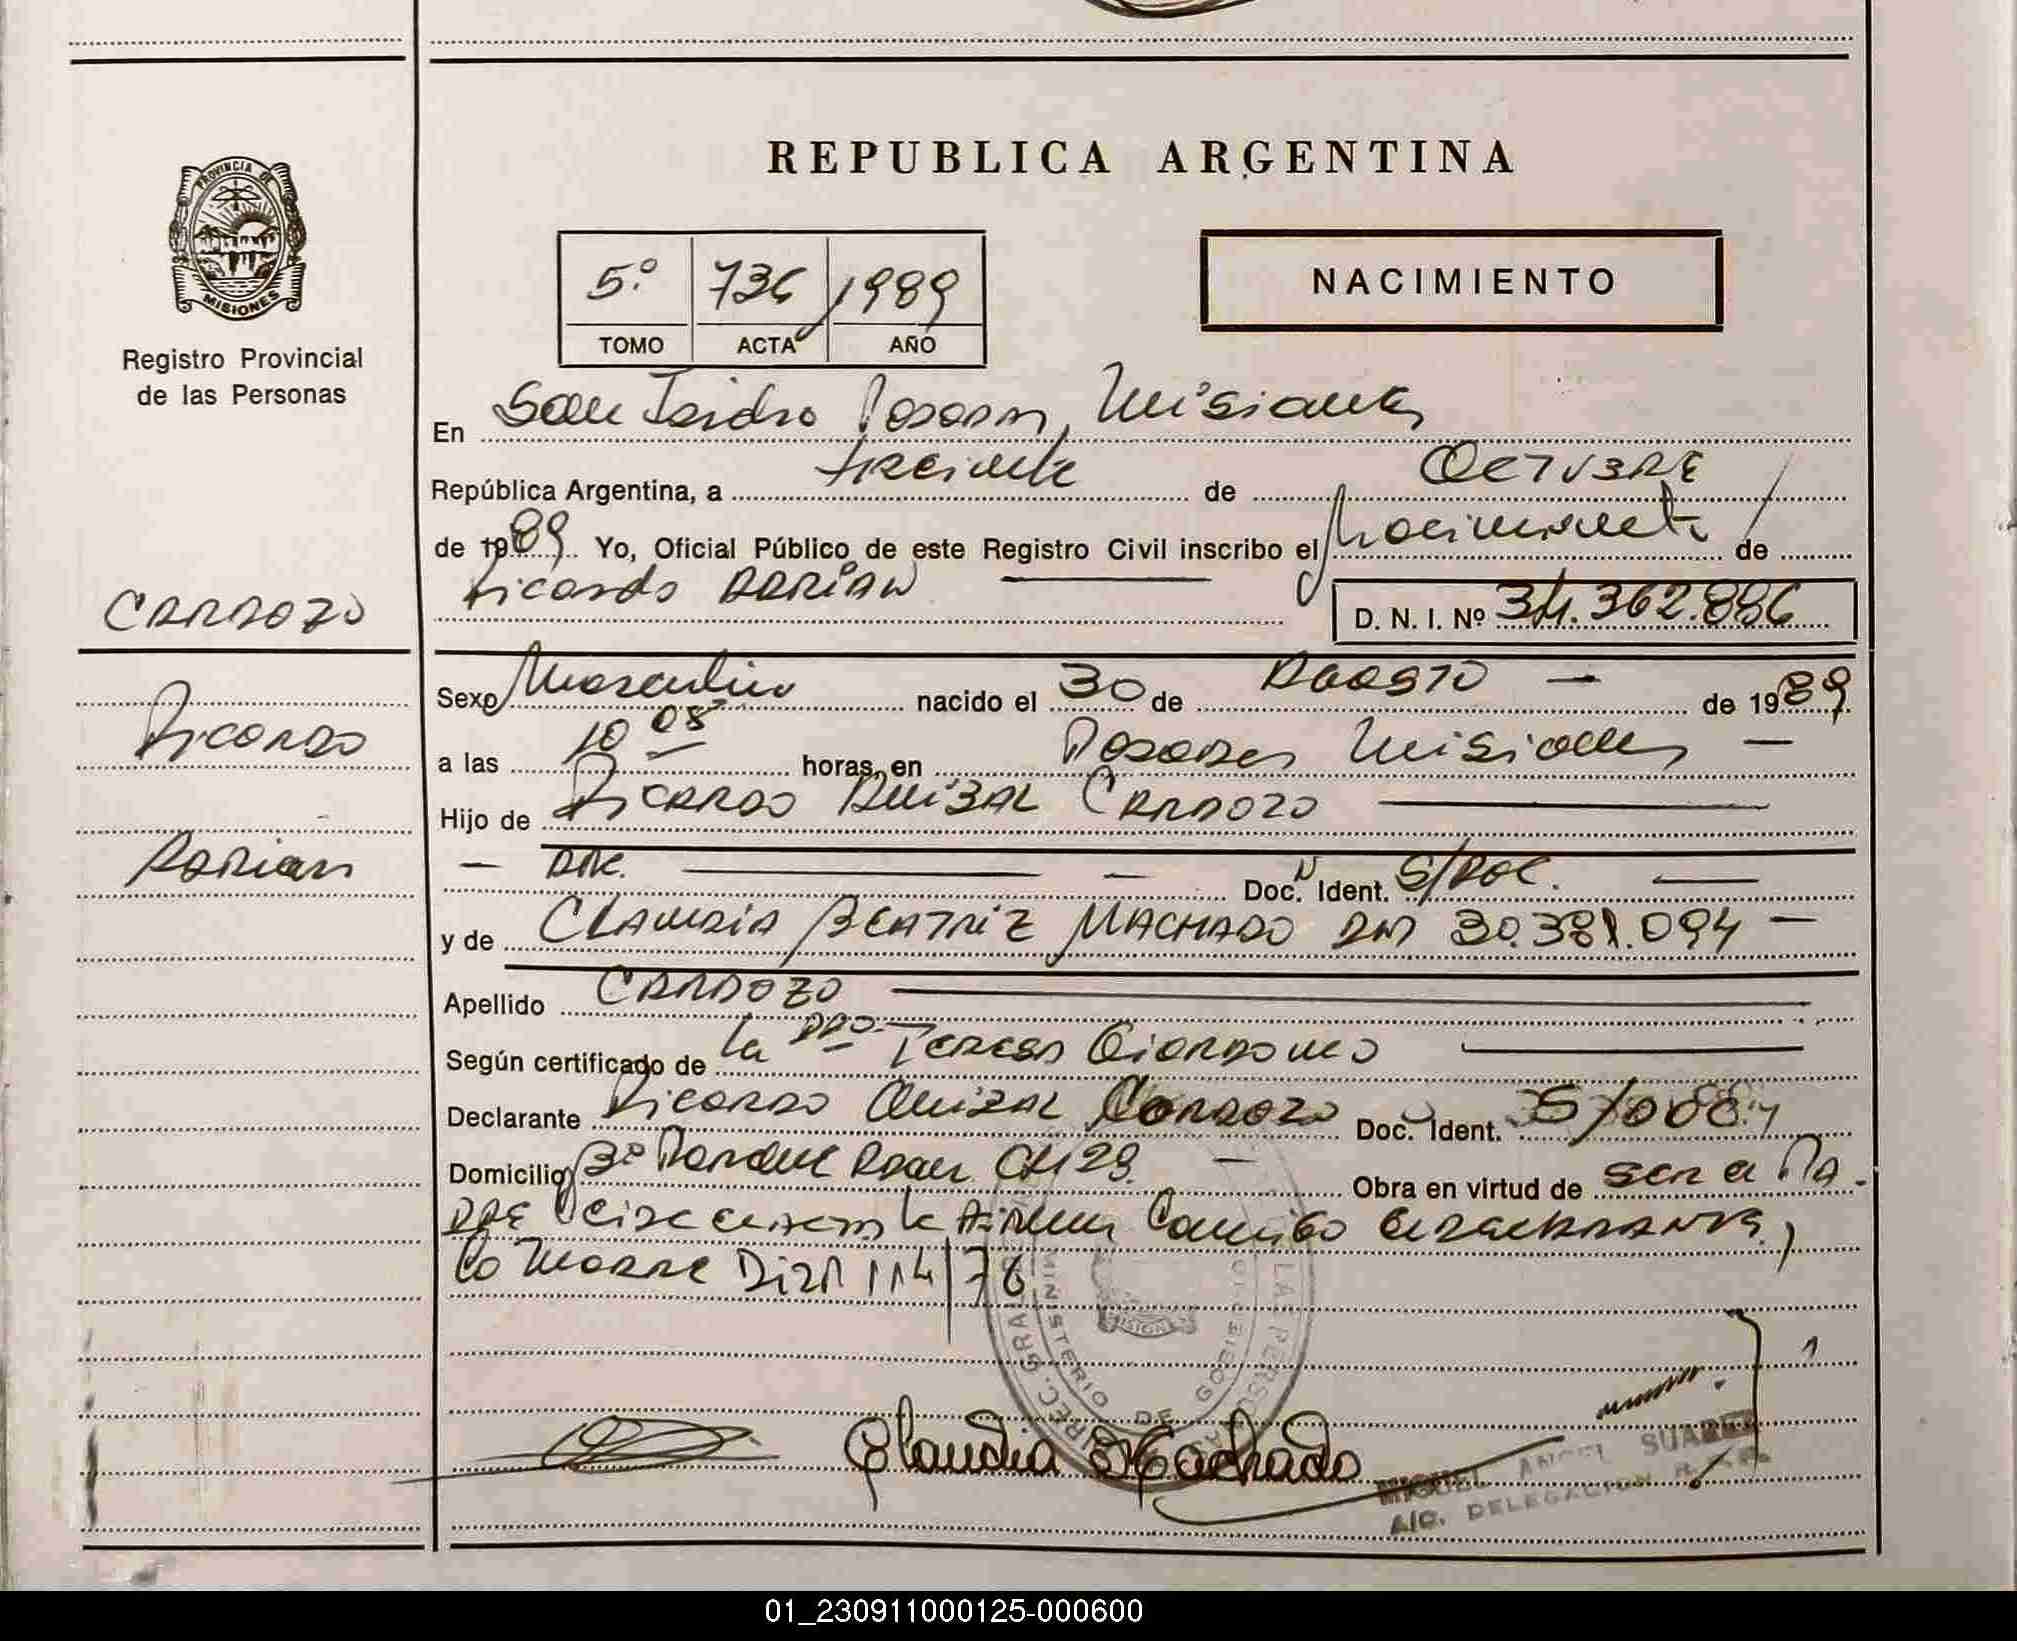 REPUBLICA ARGENTINA
PROVINCIA DE
MISIONES
Registro Provincial
de las Personas
5º 736 1989
TOMO ACTA AÑO
NACIMIENTO
En San Isidro Posadas, Misiones
República Argentina, a treinta de OCTUBRE
de 1989 Yo, Oficial Público de este Registro Civil inscribo el Nacimiento de
Ricardo ADRIAN
D. N. I. Nº 34.362.886
CARDOZO
Ricardo
Adrian
Sexo Masculino nacido el 30 de AGOSTO — de 1989
a las 10 08 horas, en Posadas Misiones —
Hijo de Ricardo ANIBAL CARDOZO
— Doc. Ident. S/DOC.
y de CLAUDIA BEATRIZ MACHADO DNI 30.381.094 —
Apellido CARDOZO
Según certificado de la DRA. Teresa Giordano
Declarante Ricardo Anibal Cardozo Doc. Ident. S/DOC.
Domicilio 3º Ch 29. — Obra en virtud de ser el PA-
DRE
la Madre 114/78
MINISTERIO DE GOBIERNO
Claudia Machado
MIGUEL ANGEL SUAREZ
A/C. DELEGACION
01_230911000125-000600